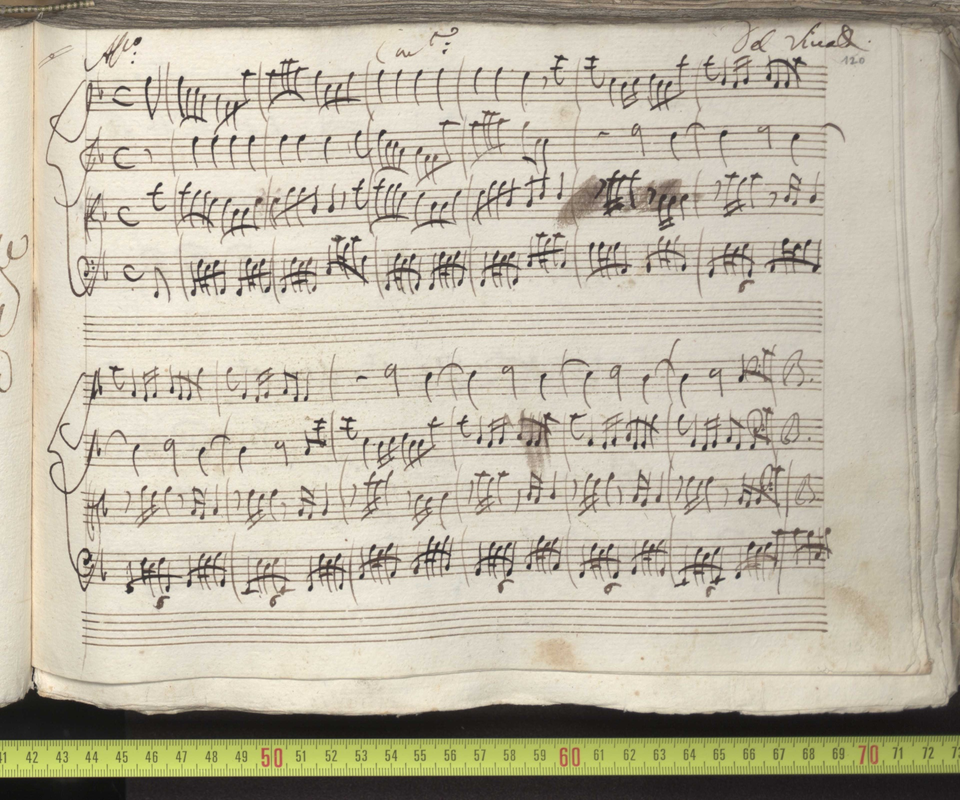 All:º Con:to Del Vivaldi.
120
6
6 6 6
41 42 43 44 45 46 47 48 49 50 51 52 53 54 55 56 57 58 59 60 61 62 63 64 65 66 67 68 69 70 71 72 73